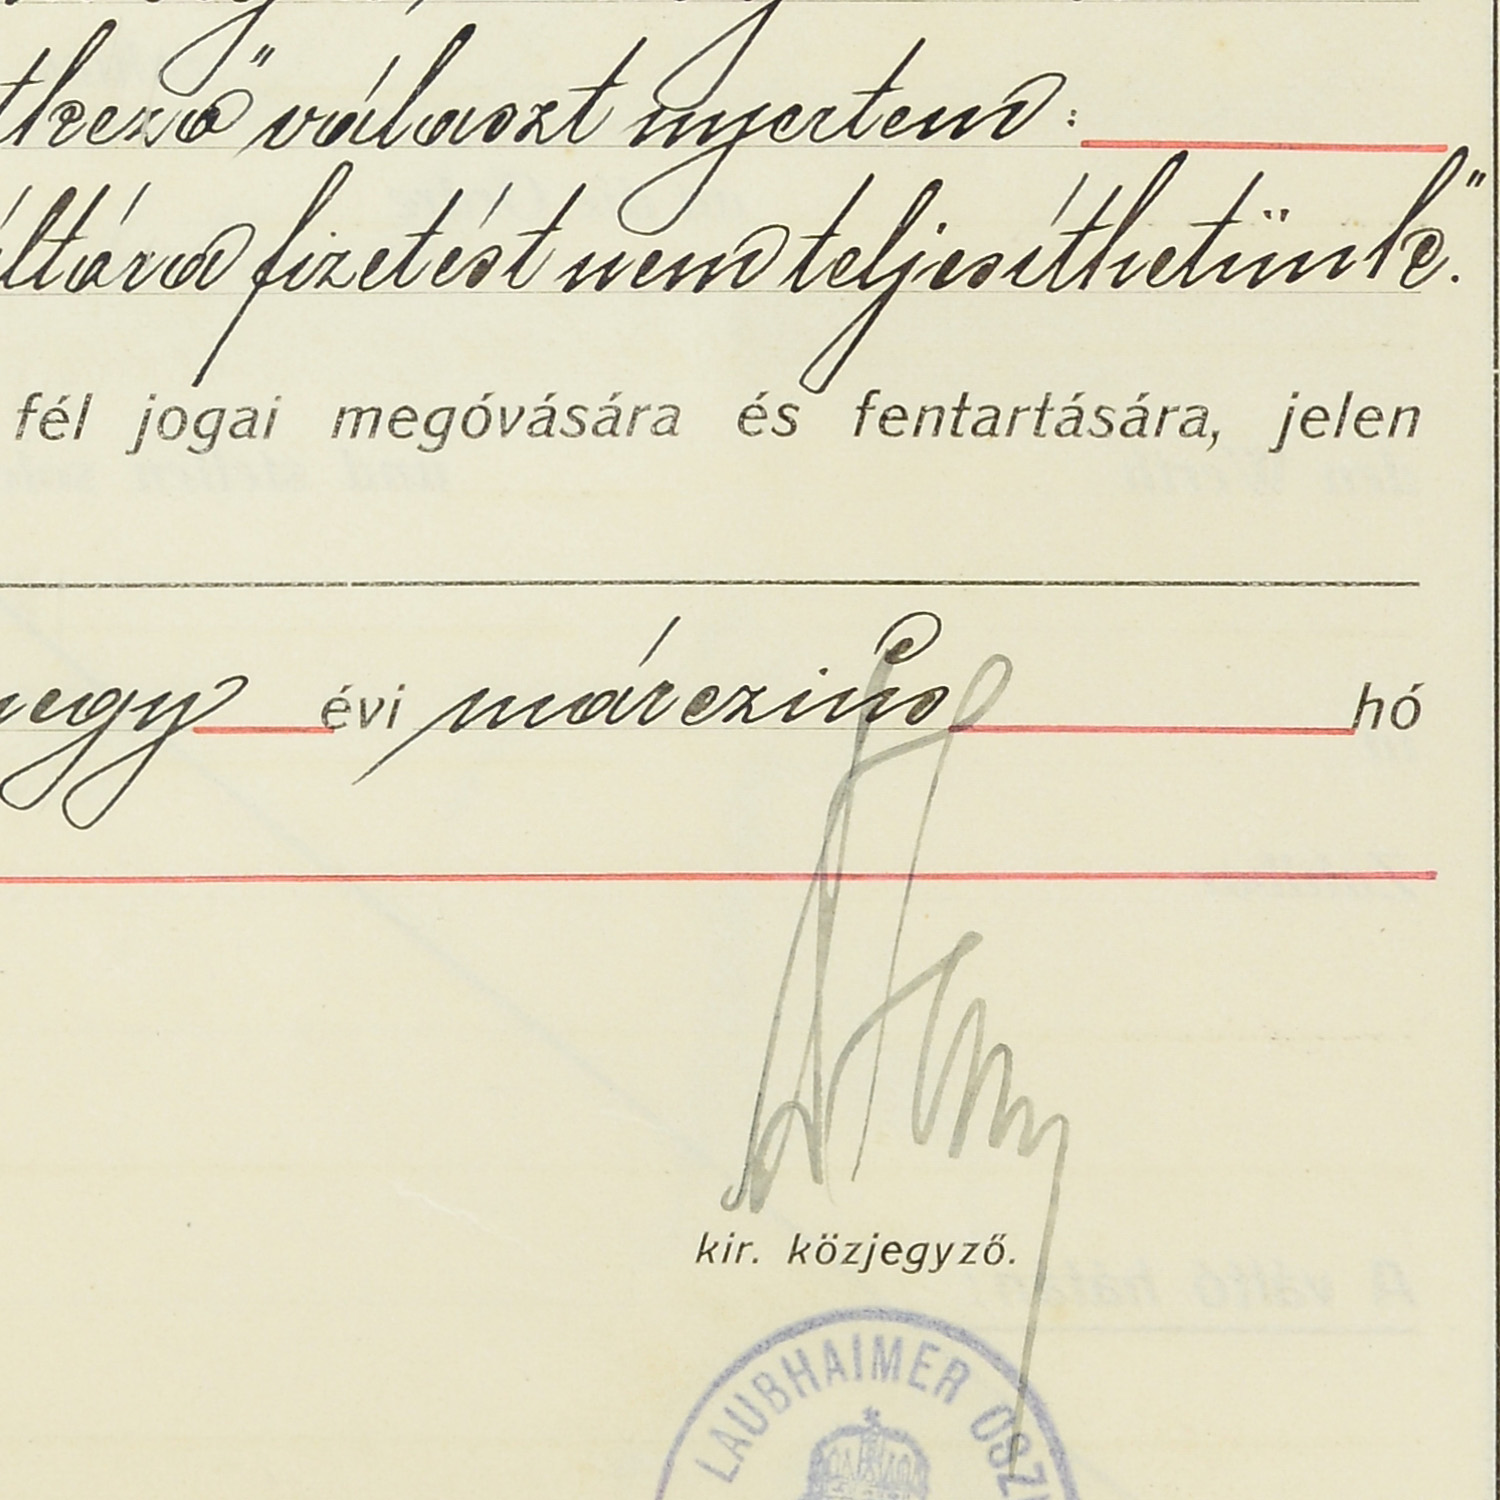 tkező választ nyertem:
áltára fizetést nem teljesíthetünk."
fél jogai megóvására és fentartására, jelen
egy évi márczius hó
kir. közjegyző.
LAUBHAIMER OSZK